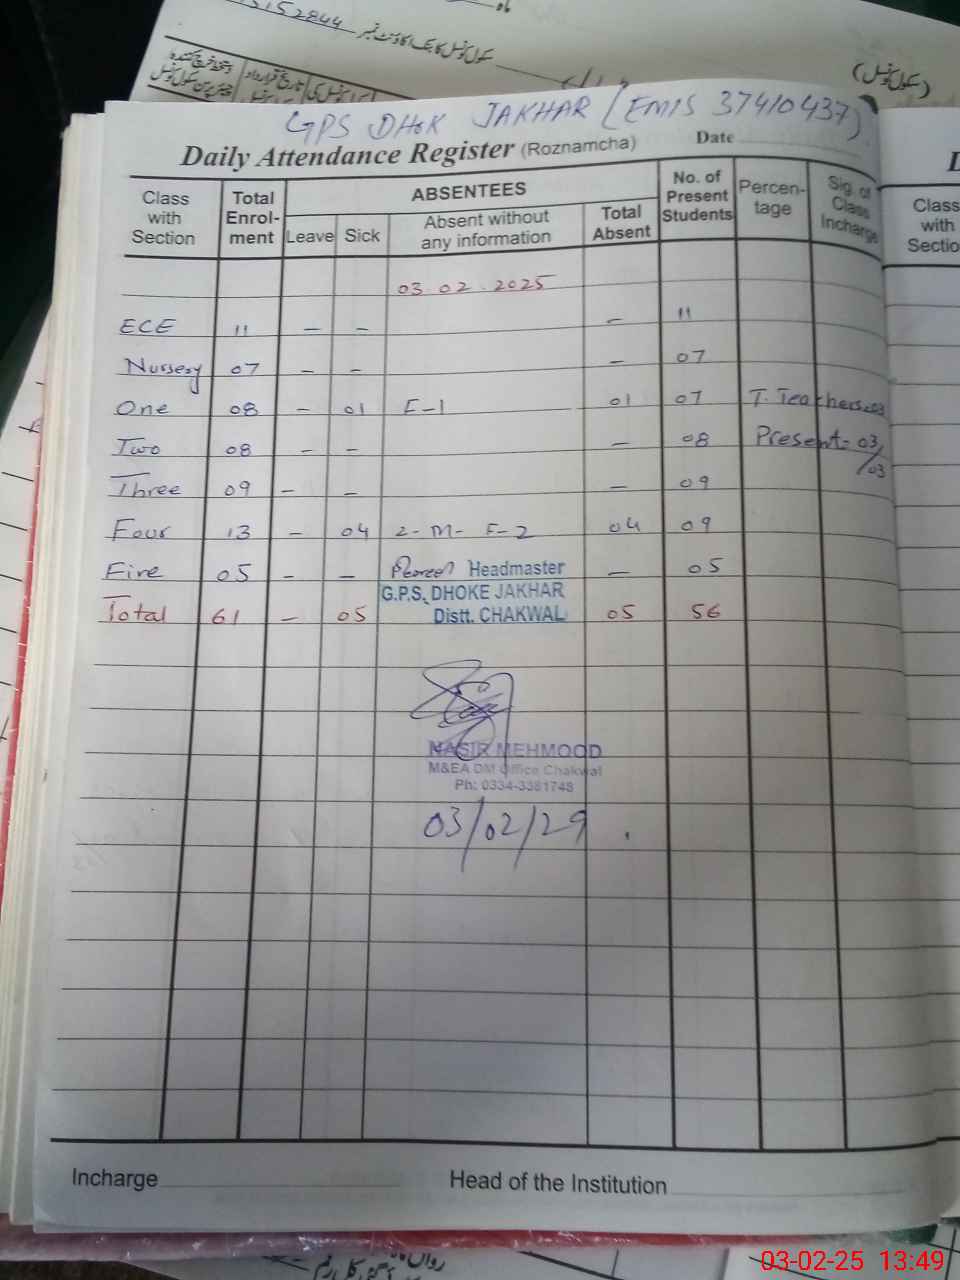 52844
سکول کونسل کا بنک اکاؤنٹ نمبر
(سکول کونسل)
GPS DHOK JAKHAR (EMIS 37410437)
Daily Attendance Register (Roznamcha) Date
Class with Section | Total Enrol-ment | ABSENTEES | No. of Present Students | Percen-tage | Sig. of Class Incharge
Leave | Sick | Absent without any information | Total Absent
03.02.2025
ECE 11 – – – 11
Nursery 07 – – – 07
One 08 – 01 F-1 01 07 T. Teachers=03
Two 08 – – – 08 Present=03/03
Three 09 – – – 09
Four 13 – 04 2-M- F-2 04 09
Five 05 – – Headmaster – 05
G.P.S. DHOKE JAKHAR
Total 61 – 05 Distt. CHAKWAL 05 56
NASIR MEHMOOD
M&EA DM Office Chakwal
Ph: 0334-3381748
03/02/29
Incharge Head of the Institution
Class with Sectio
03-02-25 13:49